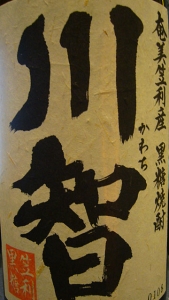 奄美笠利産 黒糖焼酎
かわち
川智
笠利
黒糖
0108